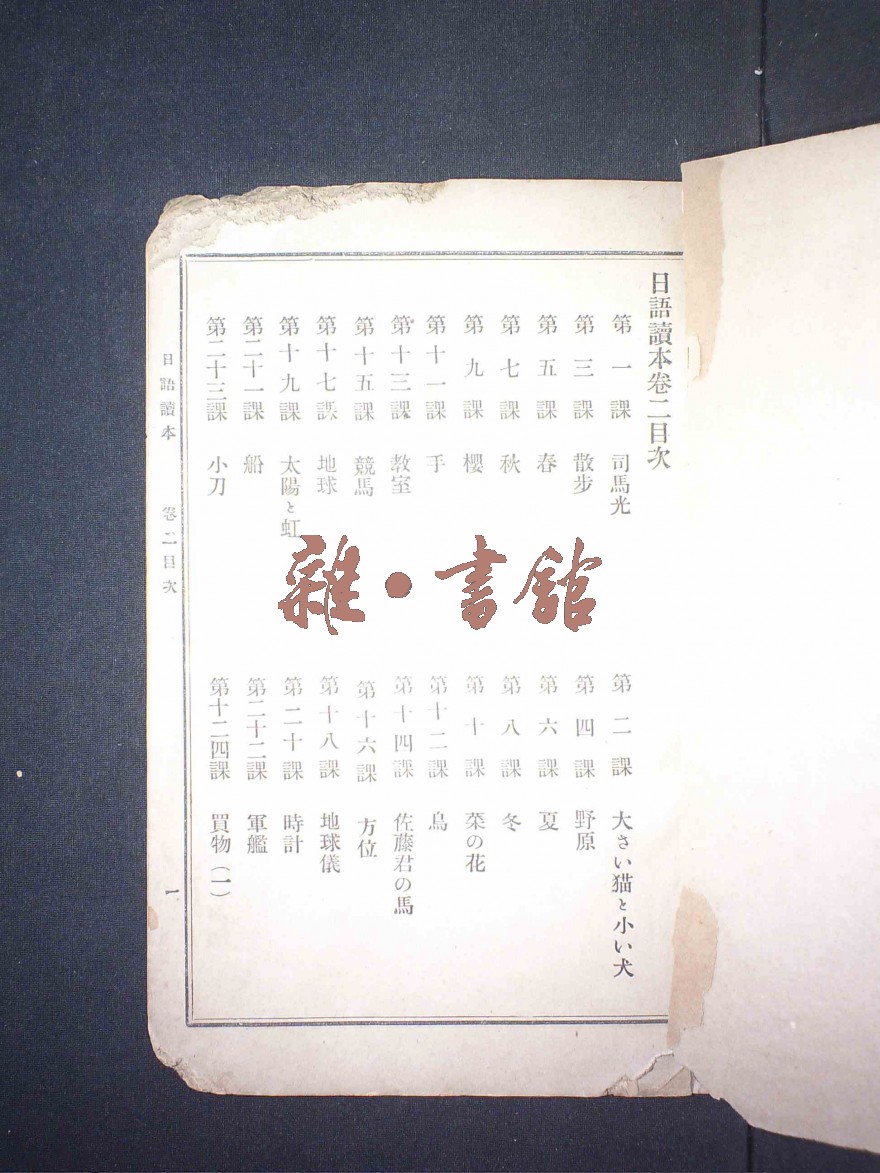 日語讀本卷二目次
第一課 司馬光
第二課 大さい猫と小い犬
第三課 散步
第四課 野原
第五課 春
第六課 夏
第七課 秋
第八課 冬
第九課 櫻
第十課 菜の花
第十一課 手
第十二課 鳥
第十三課 敎室
第十四課 佐藤君の馬
第十五課 競馬
第十六課 方位
第十七課 地球
第十八課 地球儀
第十九課 太陽と虹
第二十課 時計
第二十一課 船
第二十二課 軍艦
第二十三課 小刀
第十二四課 買物(一)
日語讀本 卷二目次
一
雜·書館